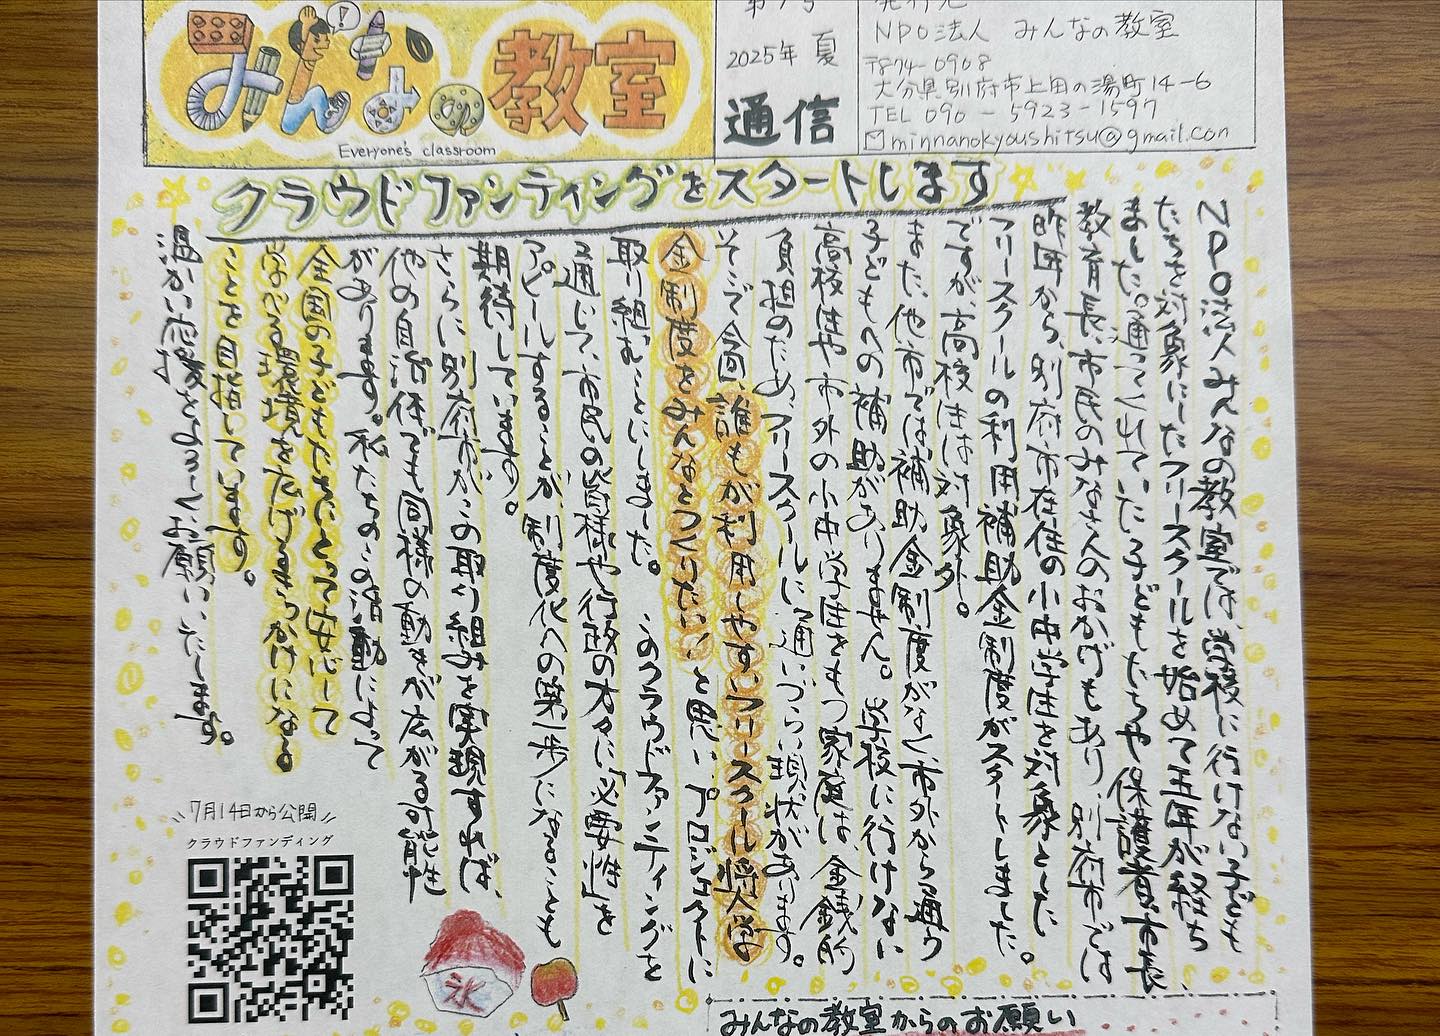 みんなの教室
Everyone's classroom
2025年 夏
通信
NPO法人 みんなの教室
〒874-0908
大分県別府市上田の湯町14-6
TEL 090-5923-1597
minnanokyoushitsu@gmail.com
クラウドファンディングをスタートします
NPO法人みんなの教室では、学校に行けない子ども
たちを対象にしたフリースクールを始めて五年が経ち
ました。通ってくれていた子どもたちや保護者、市長、
教育長、市民のみなさんのおかげもあり、別府市では
昨年から、別府市在住の小中学生を対象とした
フリースクールの利用補助金制度がスタートしました。
ですが、高校生は対象外。
また、他市では補助金制度がない、市外から通う
子どもへの補助がありません。学校に行けない
高校生や市外の小中学生をもつ家庭は、金銭的
負担のため、フリースクールに通いづらい現状があります。
そこで今回、誰もが利用しやすいフリースクール奨学
金制度をみんなとつくりたい、と思い、プロジェクトに
取り組むことにしました。このクラウドファンディングを
通じて、市民の皆様や行政の方々に「必要性」を
アピールすることが、制度化への第一歩になることも
期待しています。
さらに、別府市がこの取り組みを実現すれば、
他の自治体でも同様の動きが広がる可能性
があります。私たちのこの活動によって
全国の子どもたちにとって安心して
学べる環境を広げるきっかけになる
ことを目指しています。
温かい応援をよろしくお願いいたします。
7月14日から公開
クラウドファンディング
氷
みんなの教室からのお願い